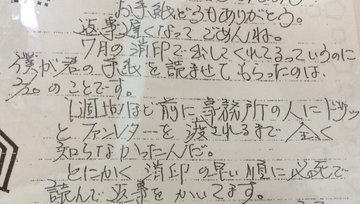 お手紙どうもありがとう。
返事遅くなってごめんね。
7月の消印で出してくれてるっていうのに
僕が君の手紙を読ませてもらったのは、
のことです。
1週間ほど前に事務所の人にドサッ
とファンレターを渡されるまで全く
知らなかったんだ。
とにかく消印の早い順に必死で
読んで返事をかいてます。